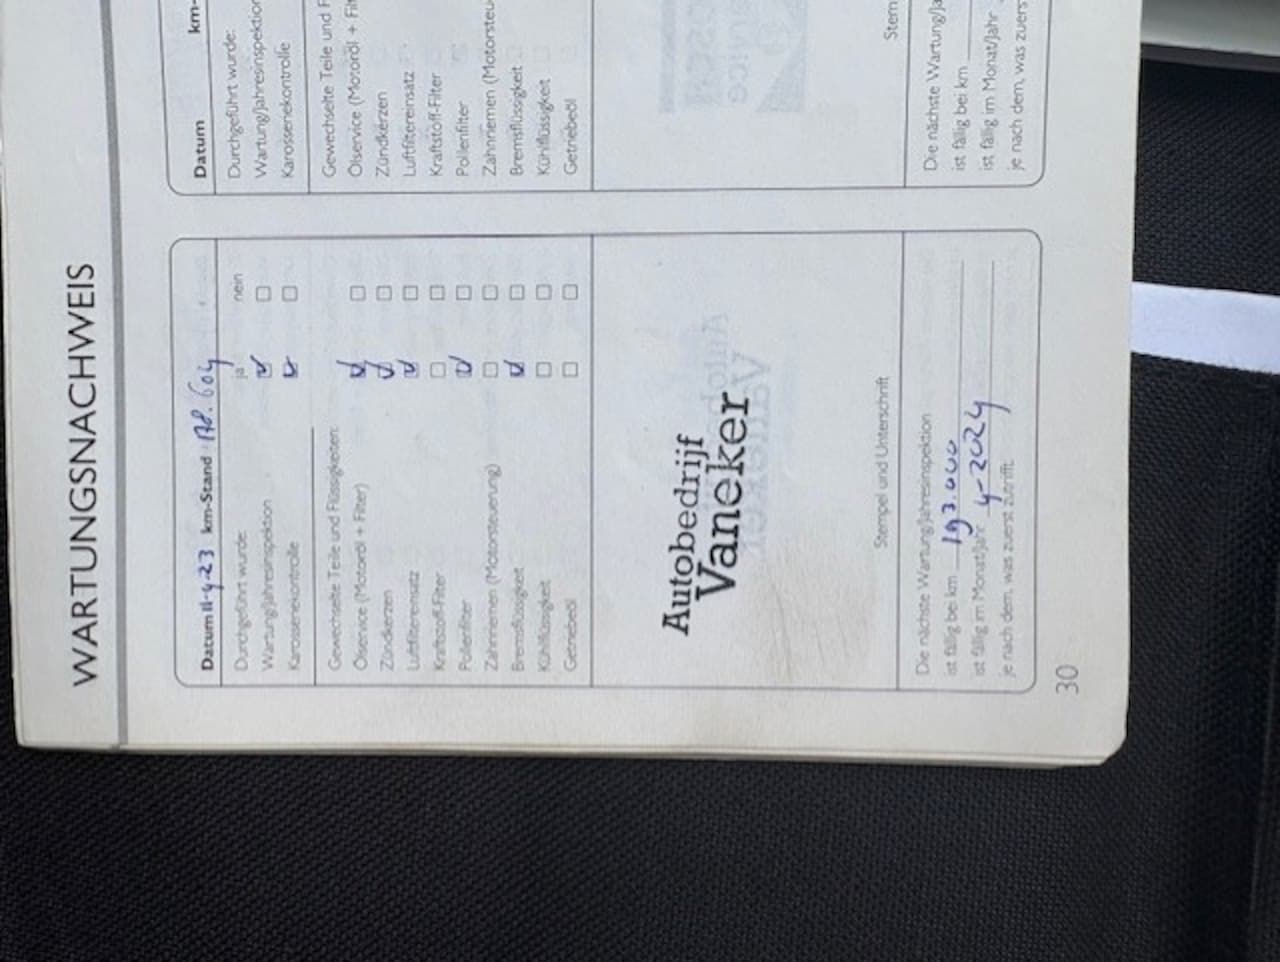 WARTUNGSNACHWEIS
Datum 11-4-23 km-Stand 178.604
Durchgeführt wurde: ja nein
Wartung/Jahresinspektion
Karossenekontrolle
Gewechselte Teile und Flüssigkeiten:
Ölservice (Motoröl + Filter)
Zündkerzen
Luftfiltereinsatz
Kraftstoff-Filter
Pollenfilter
Zahnriemen (Motorsteuerung)
Bremsflüssigkeit
Kühlflüssigkeit
Getriebeöl
Autobedrijf
Vaneker
Stempel und Unterschrift
Die nächste Wartung/Jahresinspektion
ist fällig bei km 193.000
ist fällig im Monat/Jahr 4-2024
je nach dem, was zuerst zutrifft.
30
Datum km-
Durchgeführt wurde:
Wartung/Jahresinspektion
Karossenekontrolle
Gewechselte Teile und F
Ölservice (Motoröl + Fil
Zündkerzen
Luftfiltereinsatz
Kraftstoff-Filter
Pollenfilter
Zahnriemen (Motorsteu
Bremsflüssigkeit
Kühlflüssigkeit
Getriebeöl
Stem
Die nächste Wartung/Ja
ist fällig bei km
ist fällig im Monat/Jahr
je nach dem, was zuers